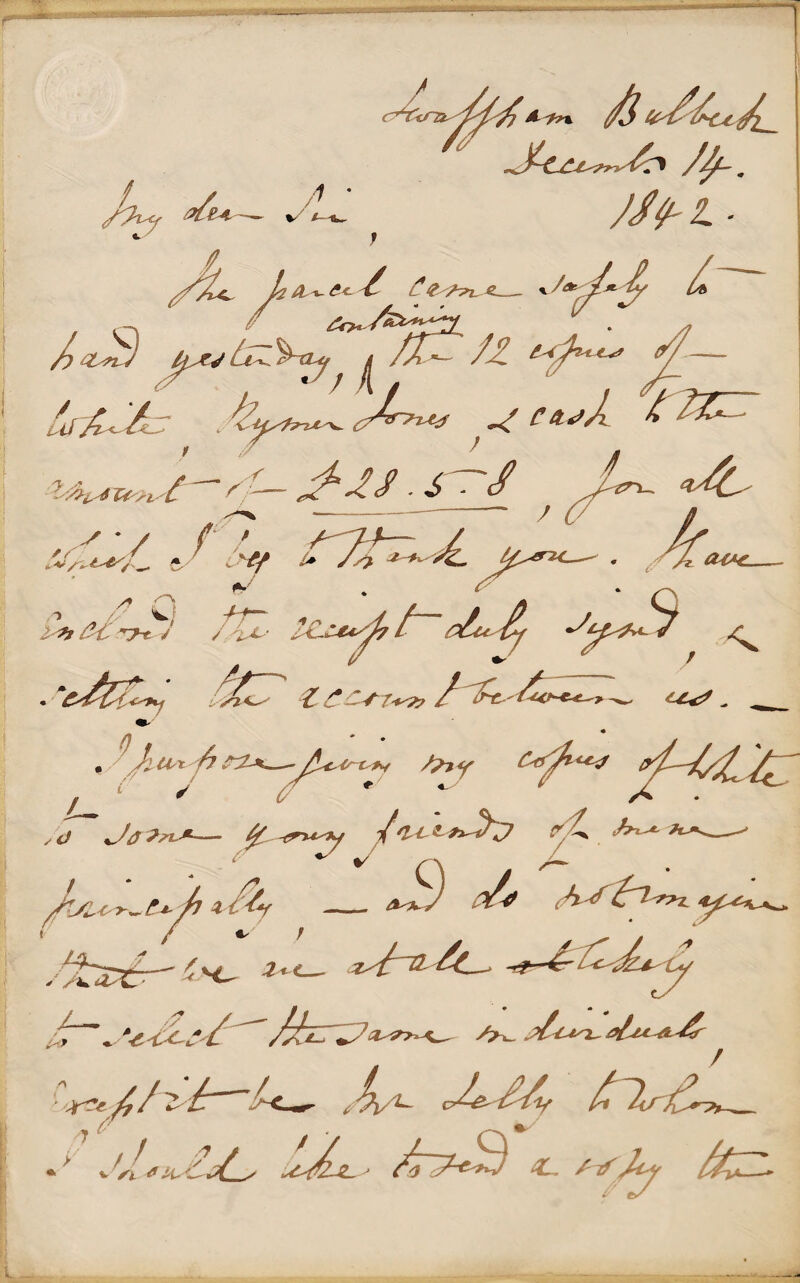 Swaffham Bulbeck
Decembr. 14.
1842.
My dear Sir,
The parcel came safely to
containing
hand yesterday, ^ the 12 copies of
White, Rymer Jones, & cash to the
amount of £28.5.8, for all
which I beg to thank you. I have
enclosed the receipt duly signed, &
settling the account between us. —
I purpose giving my copies of White
to some young friends of mine
principally, — and do not imagine
that we are at all at likely
to select the same individuals,
except it be Mr Selby to whom
I should like to send a copy the